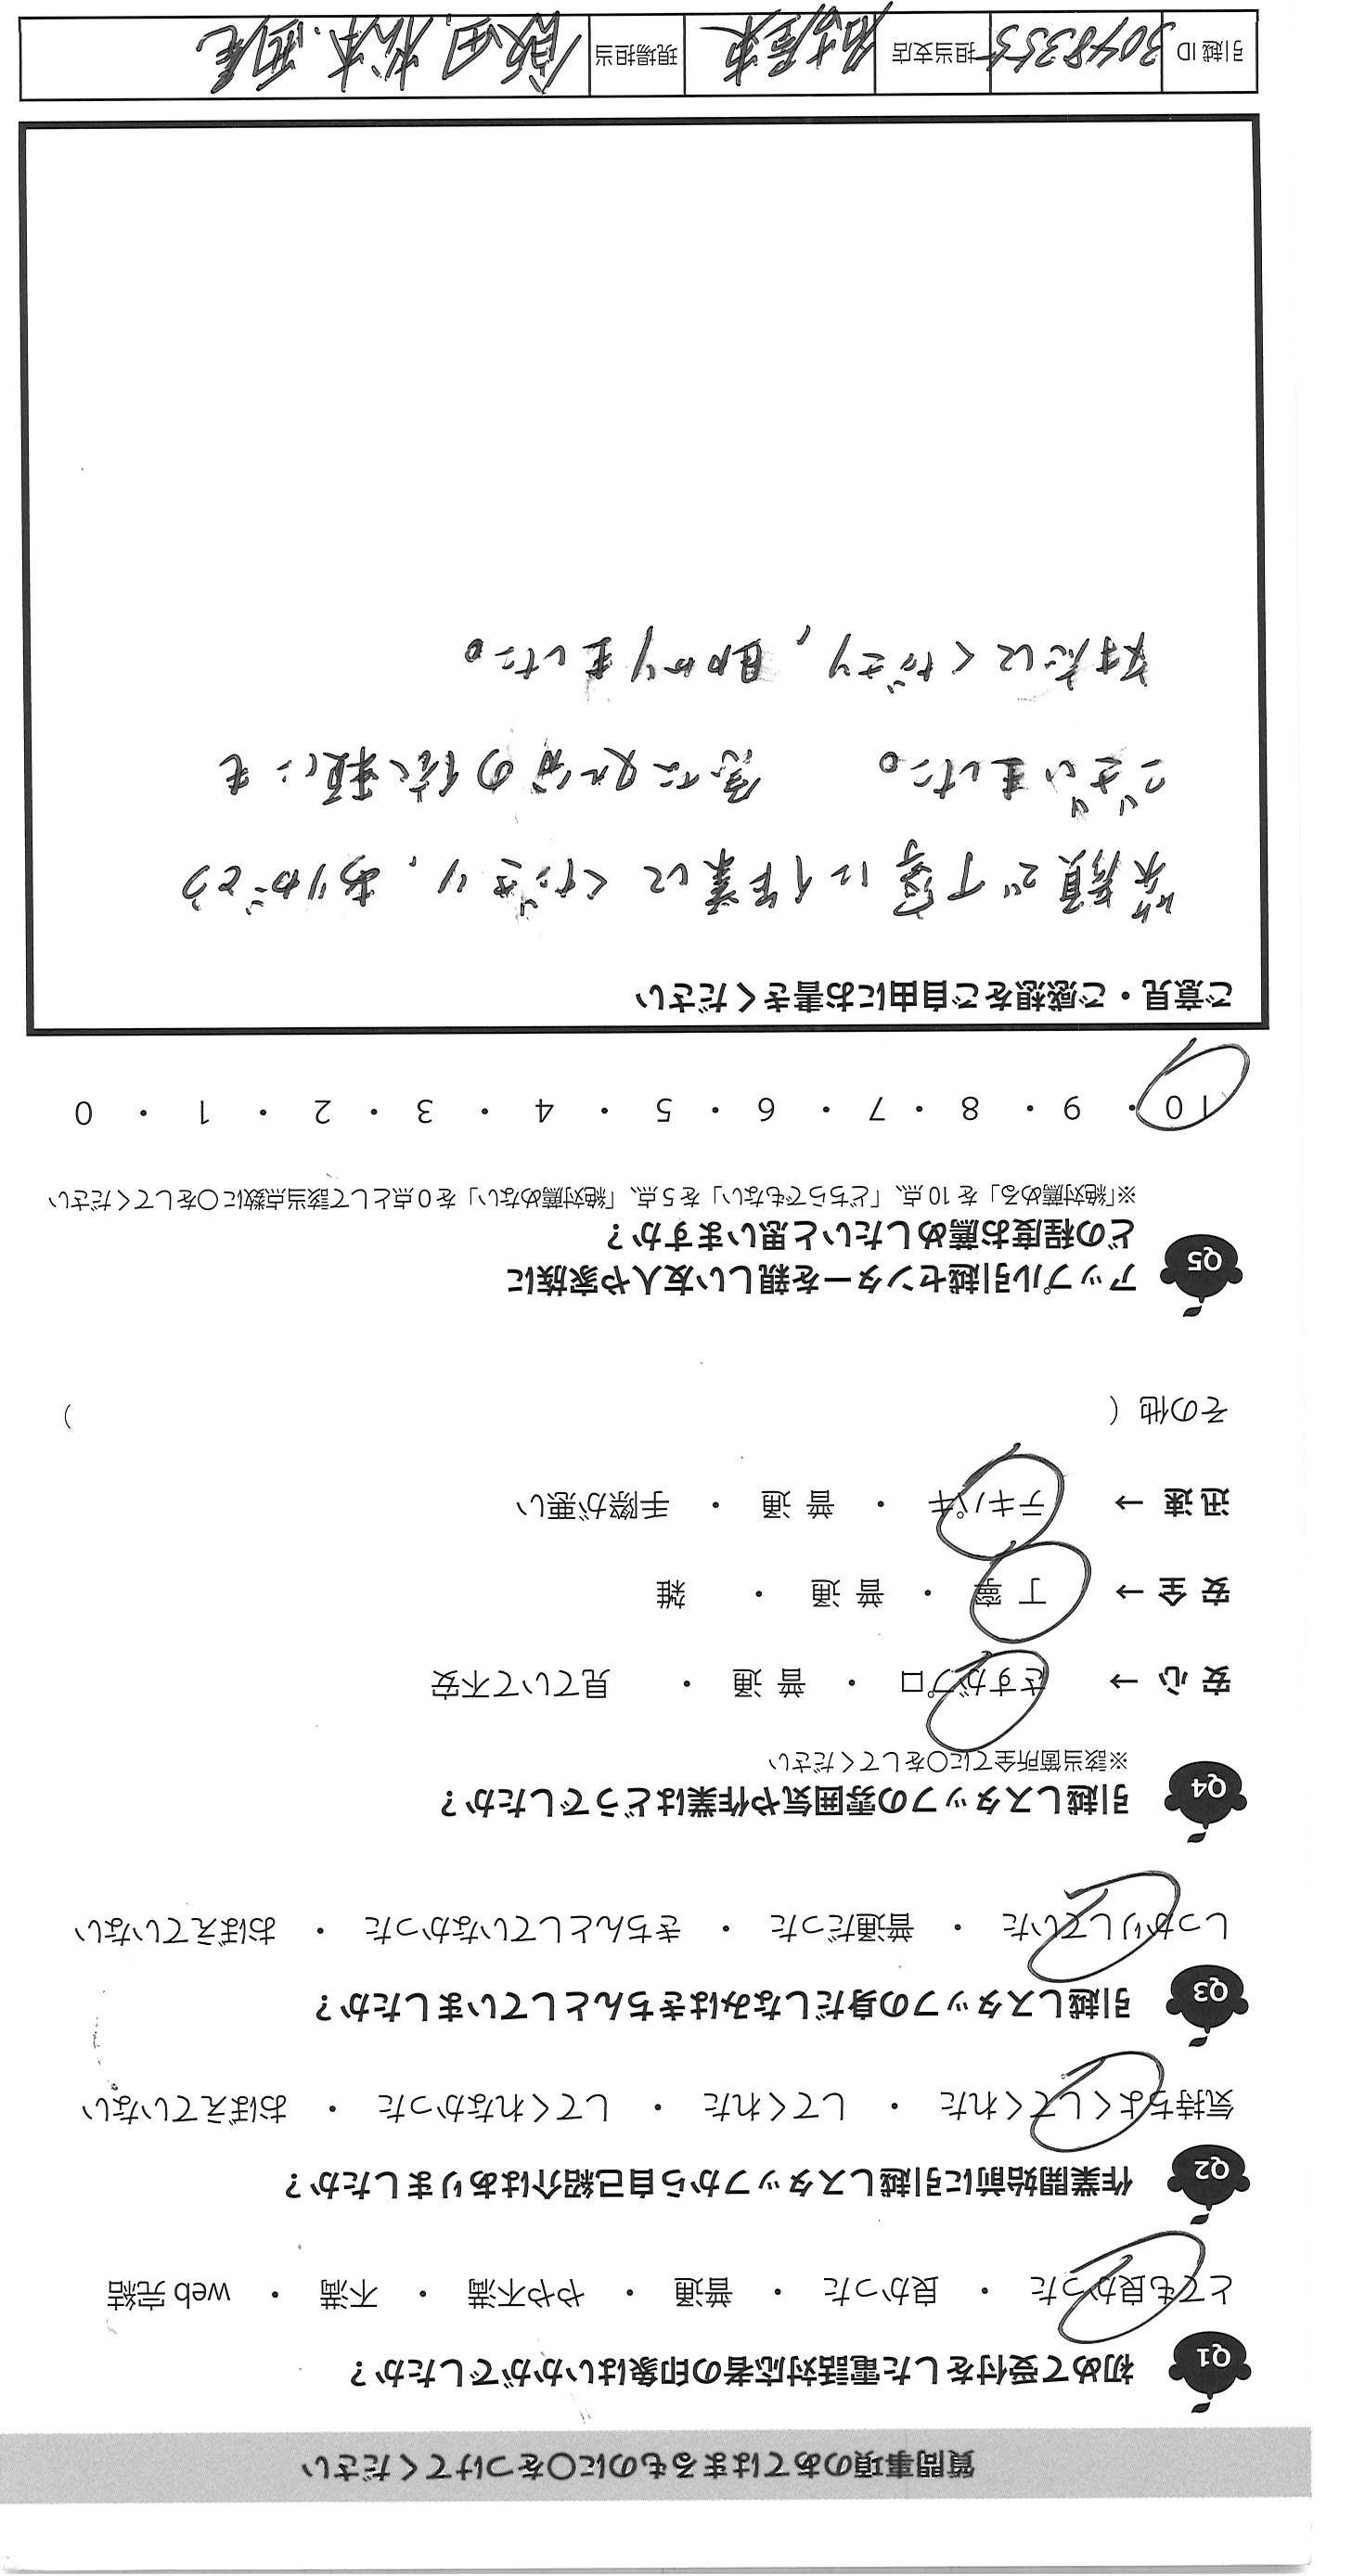 質問事項のあてはまるものに〇をつけてください
Q1 初めて受付をした電話対応者の印象はいかがでしたか？
とても良かった ・ 良かった ・ 普通 ・ やや不満 ・ 不満 ・ web 完結
Q2 作業開始前に引越しスタッフから自己紹介はありましたか？
気持ちよくしてくれた ・ してくれた ・ してくれなかった ・ おぼえていない
Q3 引越しスタッフの身だしなみはきちんとしていましたか？
しっかりしていた ・ 普通だった ・ きちんとしていなかった ・ おぼえていない
Q4 引越しスタッフの雰囲気や作業はどうでしたか？
※該当箇所全てに〇をしてください
安 心 → さすがプロ ・ 普 通 ・ 見ていて不安
安 全 → 丁 寧 ・ 普 通 ・ 雑
迅 速 → テキパキ ・ 普 通 ・ 手際が悪い
その他（ ）
Q5 アップル引越センターを親しい友人や家族に
どの程度お薦めしたいと思いますか？
※「絶対薦める」を 10 点、「どちらでもない」を 5 点、「絶対薦めない」を 0 点として該当点数に〇をしてください
10 ・ 9 ・ 8 ・ 7 ・ 6 ・ 5 ・ 4 ・ 3 ・ 2 ・ 1 ・ 0
ご意見・ご感想をご自由にお書きください
笑顔で丁寧に作業してくださり、ありがとう
ございました。 急な処分の依頼にも
対応してくださり、助かりました。
引越 ID 3048355 担当支店 名古屋東 現場担当 飯田、松本、西尾